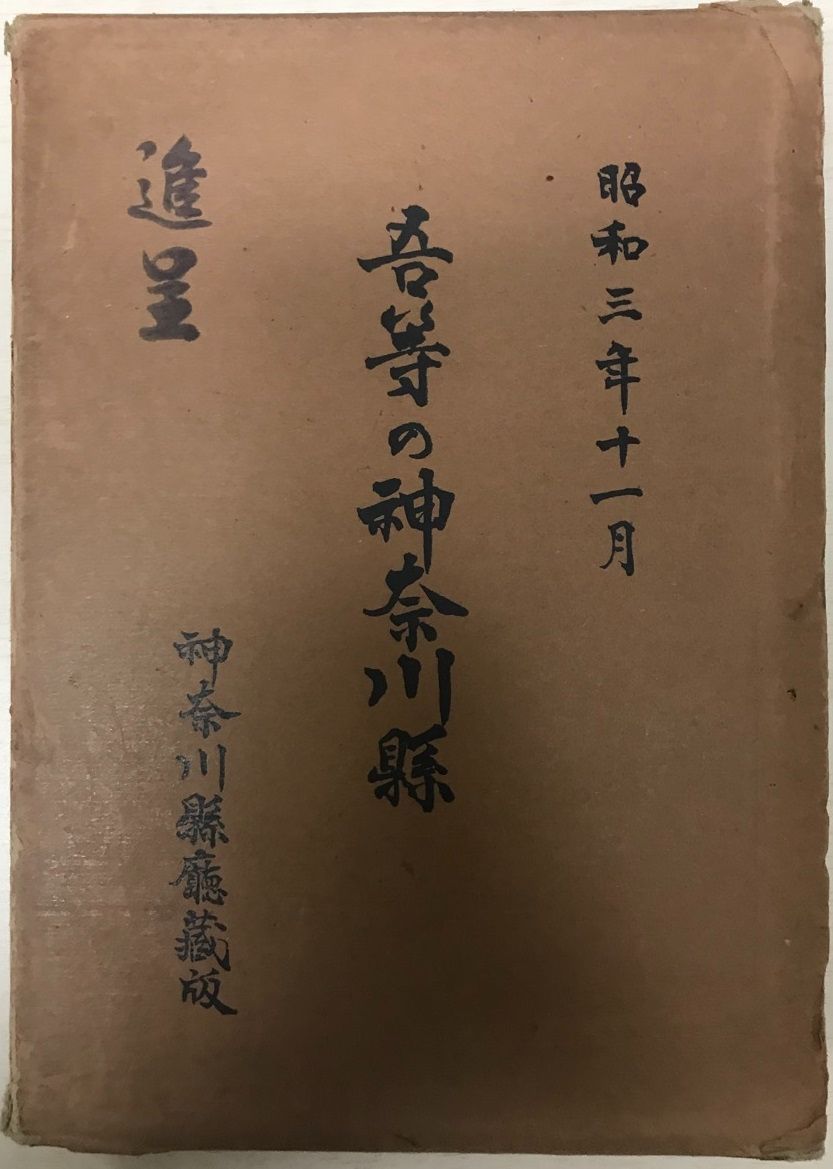 昭和三年十一月
吾等の神奈川縣
進呈
神奈川縣廳藏版